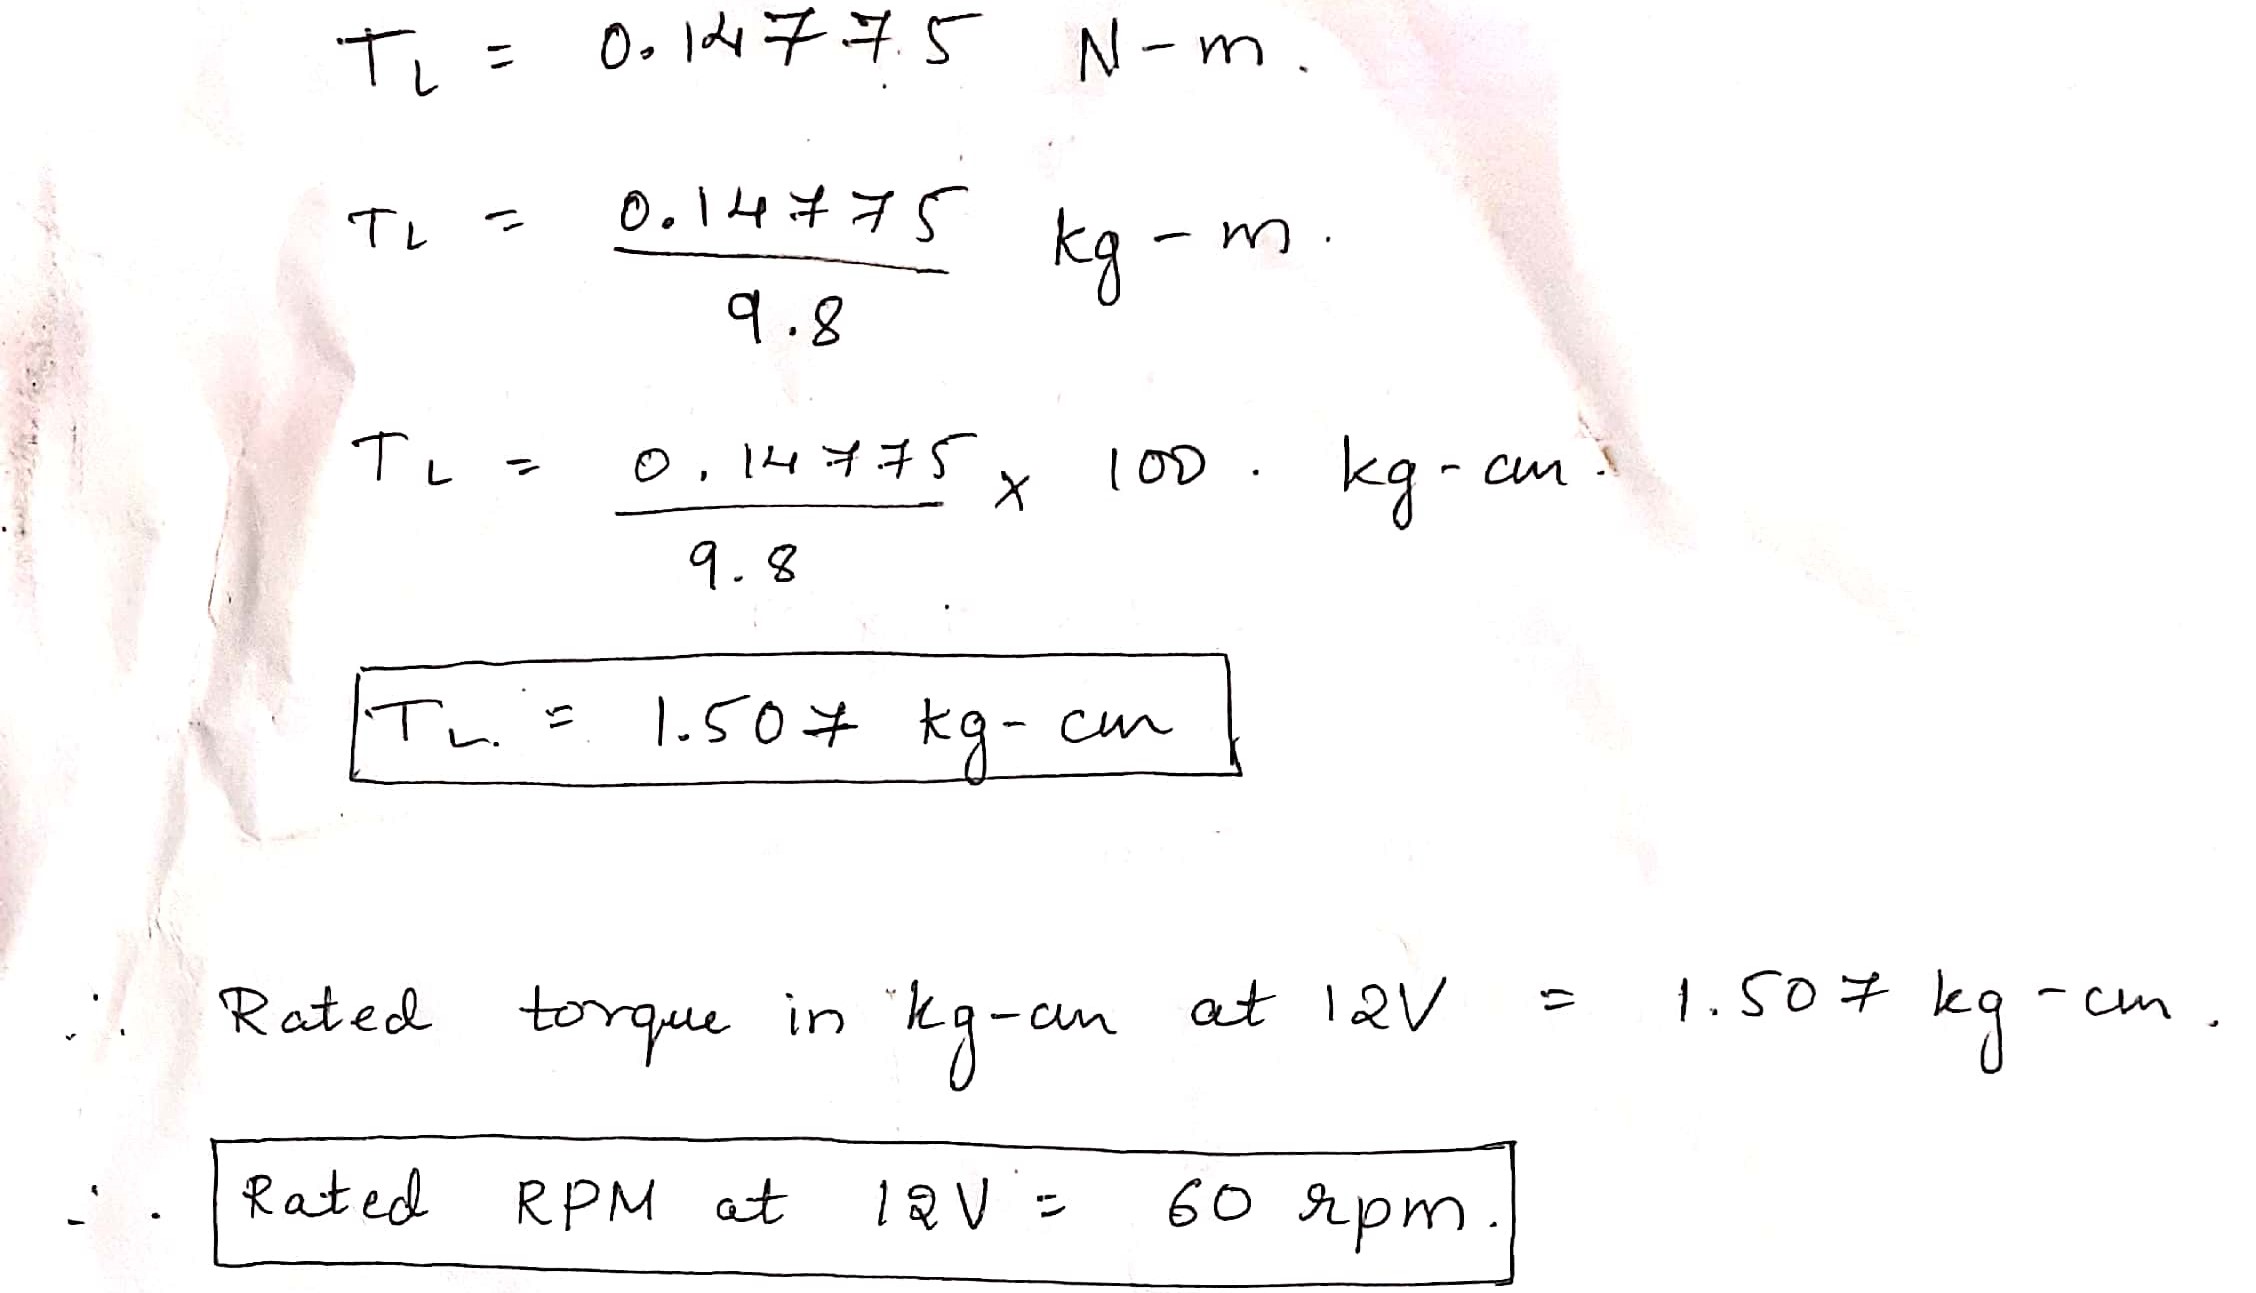 TL = 0.14775 N-m.
TL = 0.14775 / 9.8 kg-m.
TL = 0.14775 / 9.8 x 100. kg-cm.
TL = 1.507 kg-cm
∴ Rated torque in kg-cm at 12V = 1.507 kg-cm.
∴ Rated RPM at 12V = 60 rpm.